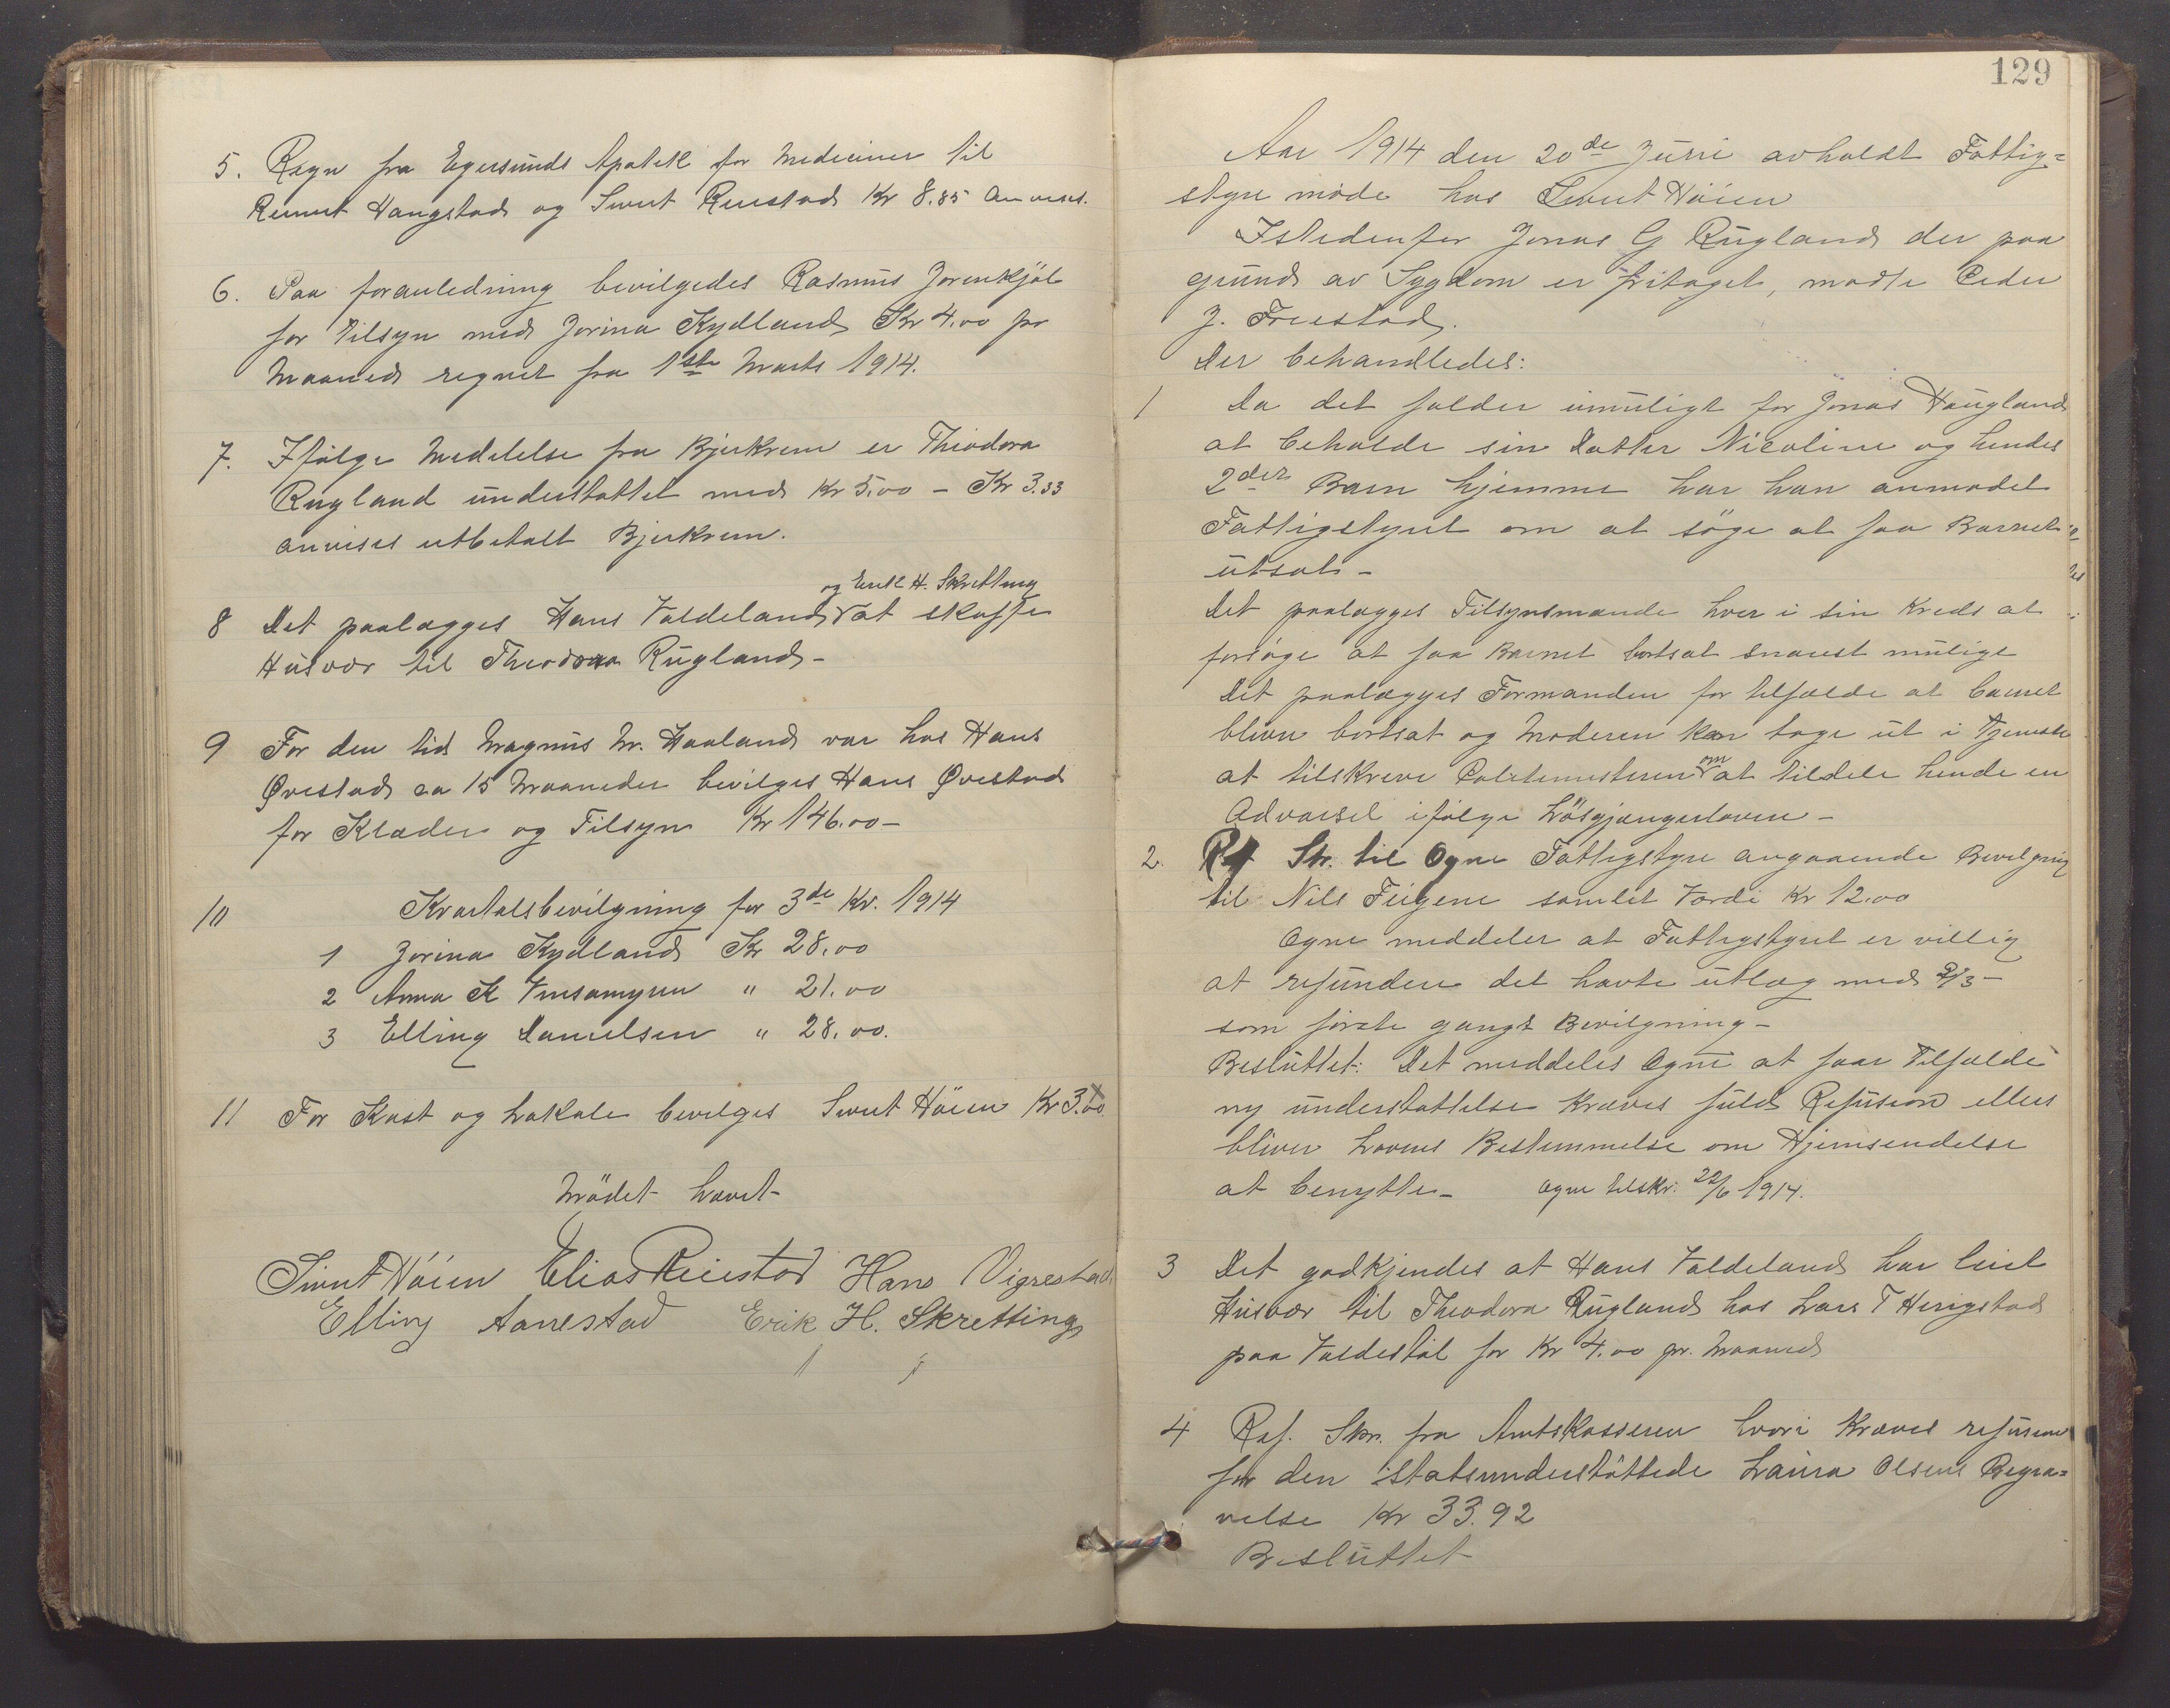 5. Regn fra Egersunds Apotek for Mediciner til
Reinert Haugstad og Sivert Reiestad Kr 8.85 Anvises.
6. Paa foranledning bevilgedes Rasmus Jorenkjöl
for tilsyn med Jorina Kydland Kr 4.00 pr
Maaned regnet fra 1ste Marts 1914.
7. Ifölge Meddelelse fra Bjerkrem er Theodora
Rugland understöttet med Kr 5.00 – Kr 3.33
anvises utbetalt Bjerkrem.
og Erik H. Skretting
8 Det paalægges Hans Valdeland at skaffe
Husvær til Theodora Rugland –
9 For den tid Magnus M. Haaland var hos Hans
Ørestad ca 15 Maaneder bevilges Hans Ørestad
for Klæder og Tilsyn Kr 146.00 –
10 Kvartalsbevilgning for 3de Kv. 1914
1 Jorina Kydland Kr 28.00
2 Anna K " 21.00
3 Elling Danielsen " 28.00.
11 For Kost og Lokale bevilges Sivert Höien Kr 3.00
Mödet hævet –
Sivert Höien Elias Reiestad Hans Vigrestad
Elling Aarrestad Erik H. Skretting
129
Aar 1914 den 20de Juni avholdt Fattig=
styre möde hos Sivert Höien
Istedenfor Jonas G Rugland der paa
grund av Sygdom er fritaget, mödte Peder
J. Friestad.
Der behandledes:
1 Da det falder umuligt for Jonas Haugland
at beholde sin Datter Nicoline og hendes
2det Barn hjemme har han anmodet
Fattigstyret om at söge at faa Barnet
utsat –
Det paalægges Tilsynsmænde hver i sin Kreds at
forsöge at faa Barnet bortsat snarest mulige
Det paalægges Formanden for tilfælde at barnet
bliver bortsat og Moderen kan tage ut i Tjeneste
at tilskrive Politimesteren om at tildele hende en
Advarsel ifölge Lösgjængerloven –
2. Skr. til Ogne Fattigstyre angaaende Bevilgning
til Nils samlet Værdi Kr 12.00
Ogne meddeler at Fattigstyret er villig
at refundere det havte utlæg med 2/3 –
som förste gangs Bevilgning –
Besluttet: Det meddeles Ogne at faar Tilfælde
ny understöttelse kræves fuld Refusion ellers
bliver Lovens Bestemmelse om Hjemsendelse
at benytte – Ogne tilskr. 22/6 1914.
3 Det godkjendes at Hans Valdeland har leiet
Husvær til Theodora Rugland hos Lars T Herigstad
paa Valdestöl for Kr 4.00 pr. Maaned
4 Ref. Skr. fra Amtskassereren hvori kræves refusion
for den statsunderstöttede Laura Olsens Begra=
velse Kr 33.92
Besluttet